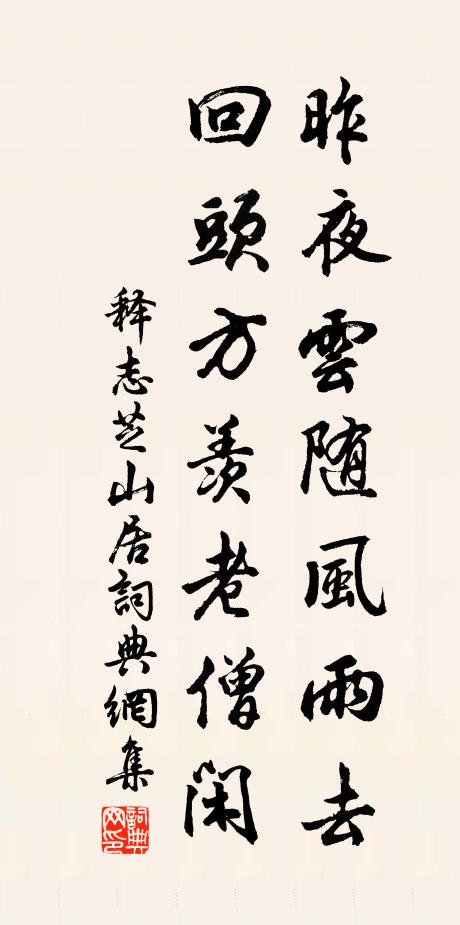 昨夜雲随風雨去
回頭方羨老僧閑
释志芝山居詞典網集
詞典网印